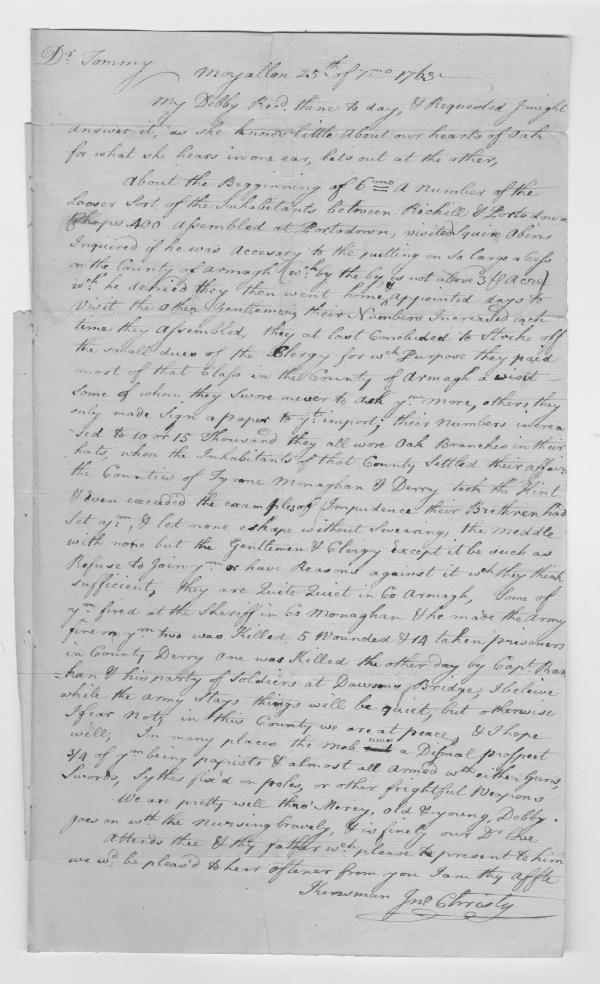 Dr. Tommy
Moyallon 25th of 7mo 1763
My Debby Recd. thine to day, & Requested I might
answer it, as she knows little about our hearts of Oak
for what she hears in one ear, lets out at the other,
About the Beggining of 6mo A number of the
Looser Sort of the Inhabitants between Richill & Portodown
400 Assembled at Portodown, visited Squire Obins
Inquired if he was Accesary to the putting on So large a Cess
on the County of Armagh (wch. by the by is not above 3½ Acre)
wch he denied they then went home, & Appointed days to
Visit the other Gentlemen, their Numbers Increased each
time they Assembled, they at last Concluded to Strike off
the small dues of the Clergy for wch Purpose they paid
most of that Class in the County of Armagh a visit
Some of whom they Swore never to ask ym More, others they
only made Sign a paper to yt. import; their numbers increa
-sed to 10 or 15 Thousand they all wore Oak Branches in their
hats, when the Inhabitants of that County Settled their affairs
the Counties of Tyrone Monaghan & Derry took the Hint
& even exceeded the examples of Impudence their Brethren had
Set ym, & let none eshape without Swearing, the meddle
with none but the Gentlemen & Clergy except it be such as
Refuse to Join ym or have Reasons against it wch they think
sufficient, they are Quite Quiet in Co Armagh, Some of
ym fired at the Sheriff in Co Monaghan & he made the Army
fire on ym two was Killed 5 Wounded & 14 taken prisoners
in County Derry One was Killed the other day by Capt.
& his party of Soldiers at Dawsons Bridge, I believe
while the Army Stays things will be quiet, but otherwise
I fear not, in this County we are at peace, & I hope
will; In many places the Mob was a Dismal prospect
3/4 of ym being papists & almost all Armed wth either Guns,
Swords, Sythes fix'd on poles, or other frightful Weapons
We are pretty well thro' Mercy, old & young, Debby
goes on wth the Nursing bravely, & is finely our Dr. Love
attends thee & thy father wch please to present to him
we wd. be pleas'd to hear oftener from you I am thy affte
Kinsman Jno Christy